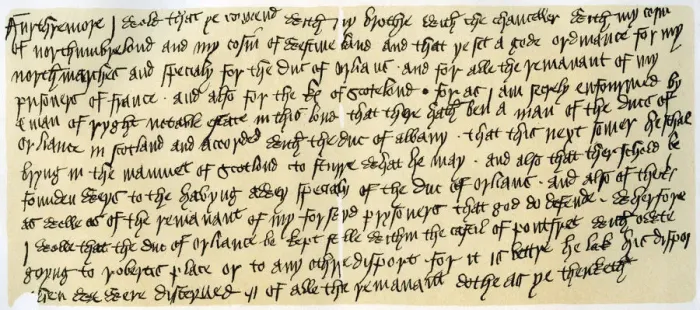 Furthremore I wold that ye comend with my brothre with the chanceller with my cosin
of northumbrelond and my cosin of westmerland and that ye set a gode ordinance for my
north marches and specialy for the duc of orlians · and for alle the remanant of my
prisoners of france · and also for the k of scotelond · for as I am secrely enfourmed by
a man of ryght notable estate in this lond that there hath ben a man of the ducs of
orliance in scotland and accorded with the duc of albany · that this next somer he schal
bryng in the mamuet of scotland to sturre what he may · and also that ther schold be
founden weys to the havyng awey specialy of the duc of orlians · and also of the k
as welle as of the remanant of my forsayd prysoners that god do defende · wherfore
I wolle that the duc of orliance be kept stille withyn the castil of pontfret with owte
goyng to robertis place or to any othre disport · for it is bettre he lak his disport
then we were disceyved of alle the remanant dothe as ye thenketh